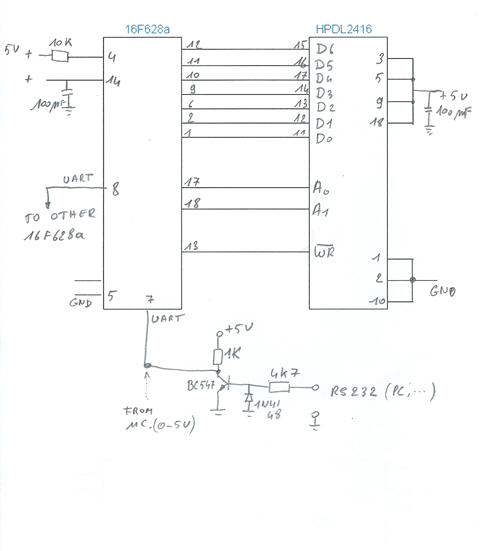 16F628a HPDL2416
10K
5V + 4 12 15 D6 3
11 16 D5
+ 14 10 17 D4 5
9 14 D3 +5V
100µF 6 13 D2 9
2 12 D1 100µF
1 11 D0 18
UART
8 17 A0
TO OTHER 18 A1
16F628a
13 WR
1
2 GND
GND 5 7 10
UART
+5V
1K
BC547 4K7
RS232 (PC, ...)
1N41
48
FROM
µC.(0-5V)